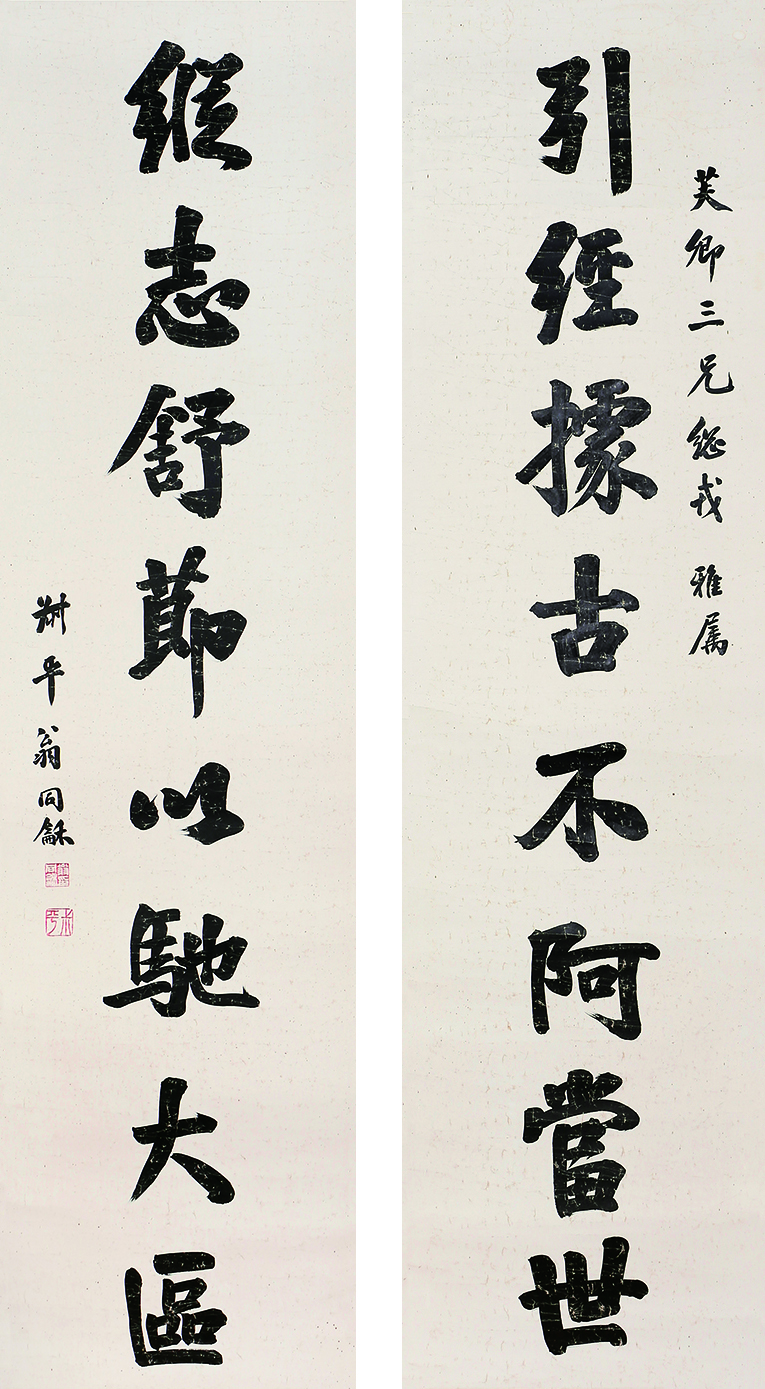 芙卿三兄總戎 雅属
引經據古不阿當世
縱志舒節以馳大區
叔平翁同龢